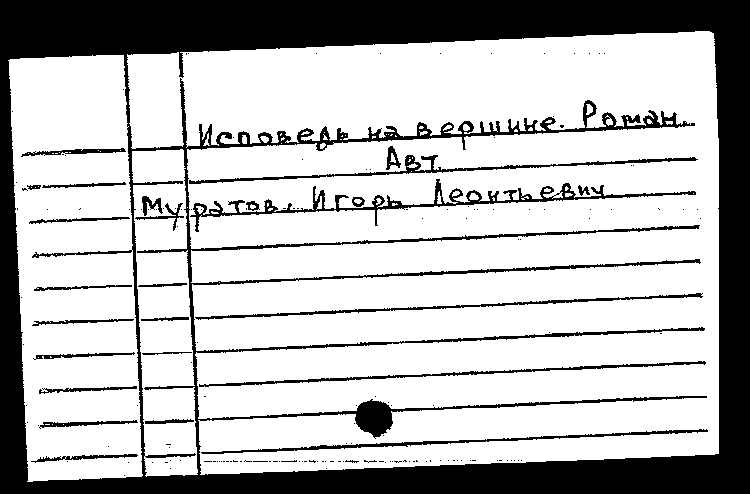 Исповедь на вершине. Роман.
Авт.
Муратов, Игорь Леонтьевич